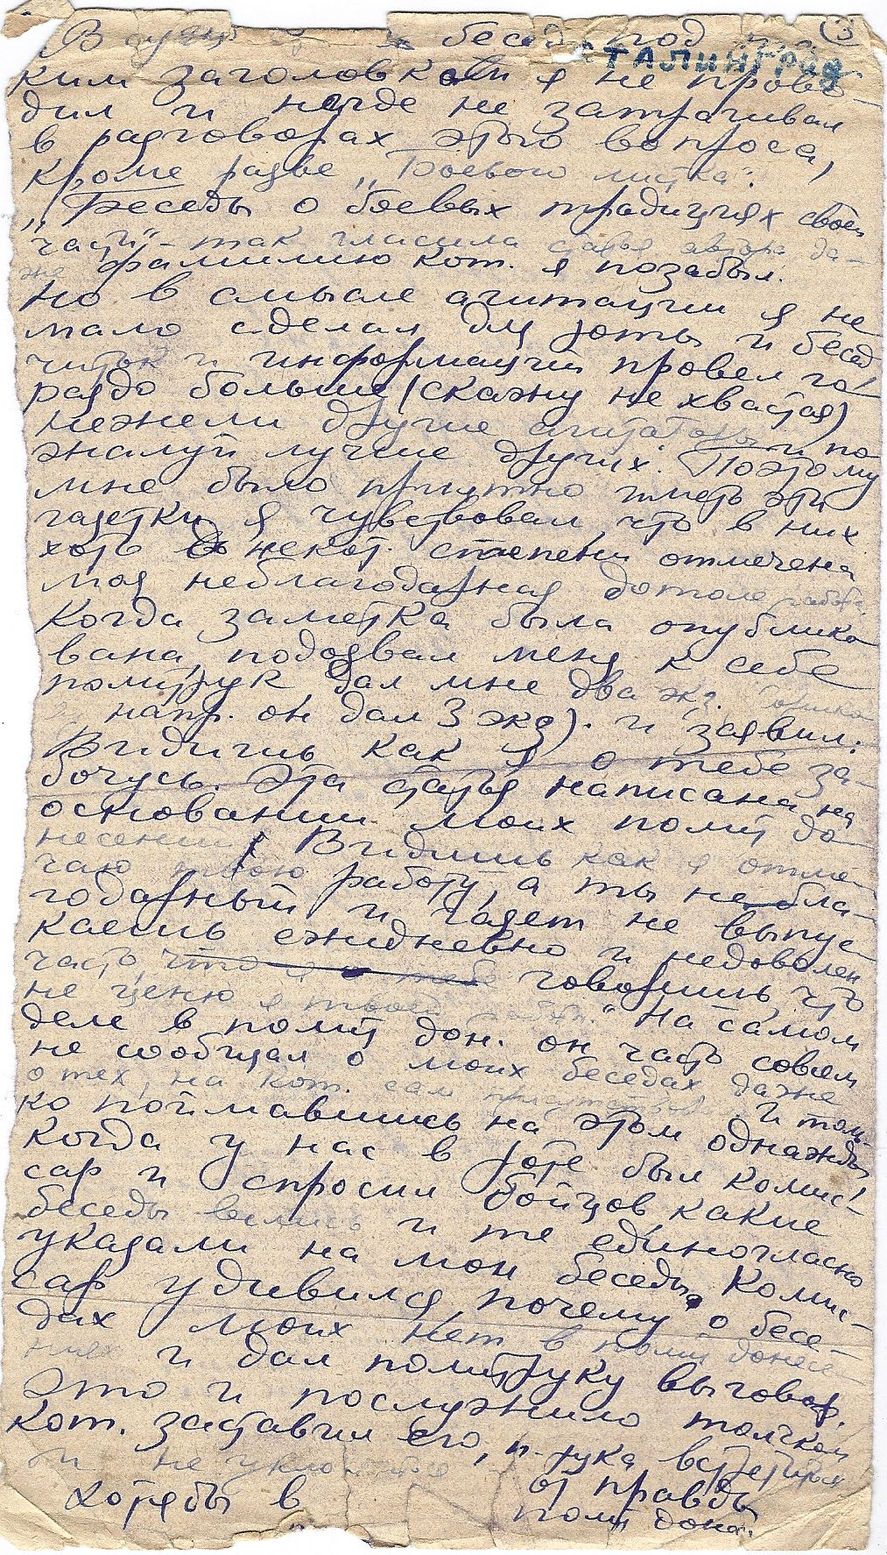 СТАЛИНГРАД
3
бесед под
ким заголовком я не прово-
дил и нигде не затрагивал
в разговорах этого вопроса,
кроме разве „Боевого листка".
„Беседы о боевых традициях своей
части" – так гласила статья автора да-
же фамилию кот. я позабыл.
Но в смысле агитации я не
мало сделал для роты и бесед
читок и информации провел го-
раздо больше (скажу не хвастая)
нежели другие агитаторы и по
жалуй лучше других. Поэтому
мне было приятно иметь эти
газетки я чувствовал, что в них
хоть в некот. степени отмечена
моя неблагодарная дотоле работа.
Когда заметка была опублико
вана, подозвал меня к себе
политрук дал мне два экз.
напр. он дал 3 экз). и заявил:
Видишь как я о тебе за-
бочусь. Эта статья написана на
основании моих полит до-
несений. Видишь как я отме-
чаю твою работу, а ты небла-
годарный и газет не выпус-
каешь ежедневно и недоволен
часто, что я о тебе говоришь, что
не ценю я твоей работы." На самом
деле в полит дон. он часто совсем
не сообщал о моих беседах даже
о тех, на кот. сам присутствовал. И толь-
ко поймавшись на этом однажды
когда у нас в роте был комис-
сар и спросил бойцов какие
беседы велись и те единогласно
указали на мои беседы. Комис-
сар удивился, почему о бесе-
дах моих нет в полит донесе
ниях и дал политруку выговор.
Это и послужило толчком
кот. заставил его, п-рука
и не уклоняться от правды
хотябы в полит донес.